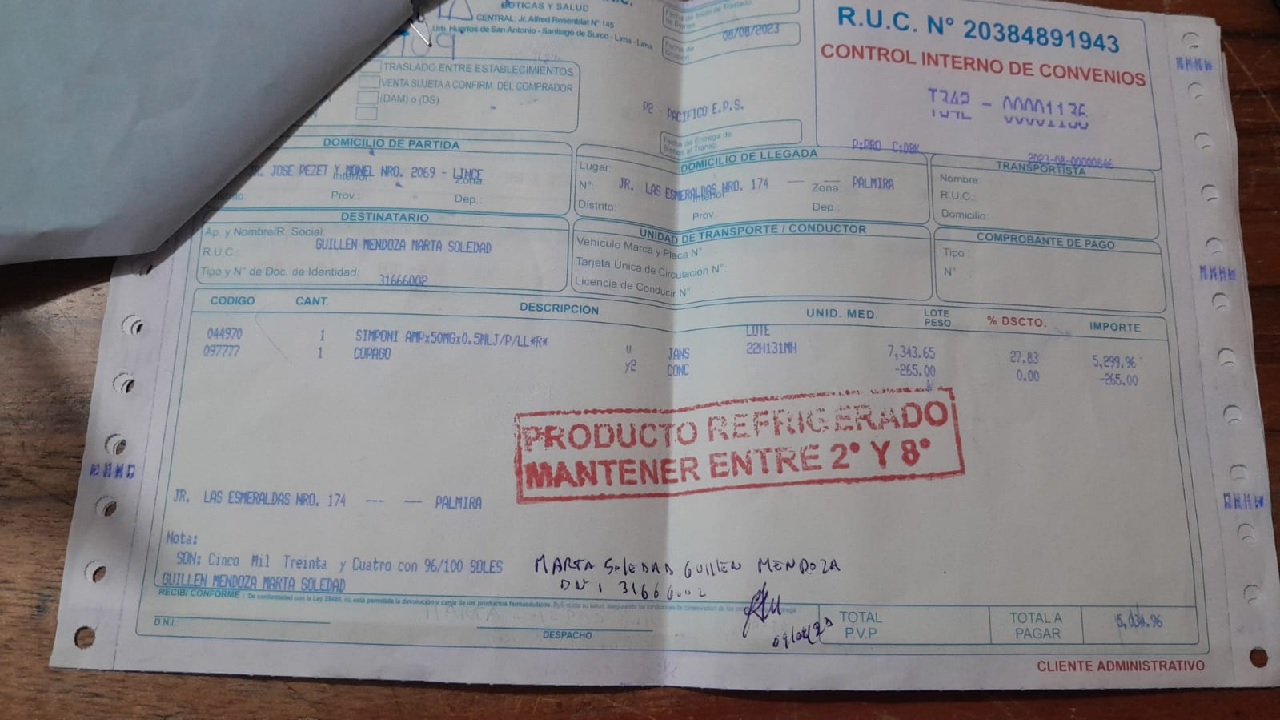 BOTICAS Y SALUD
CENTRAL: Jr. Alfred Rosenblat N° 145
Urb. Huertos de San Antonio - Santiago de Surco - Lima - Lima
TRASLADO ENTRE ESTABLECIMIENTOS
VENTA SUJETA A CONFIRM. DEL COMPRADOR
(DAM) o (DS)
08/08/2023
P2 - PACIFICO E.P.S.
R.U.C. N° 20384891943
CONTROL INTERNO DE CONVENIOS
P:PRO C:DBK
DOMICILIO DE PARTIDA
JOSE PEZET Y MONEL NRO. 2069 - LINCE
Prov.: Dep.:
DOMICILIO DE LLEGADA
Lugar
N°: JR. LAS ESMERALDAS NRO. 174 --- --- PALMIRA
Zona:
Distrito: Prov.: Dep.:
TRANSPORTISTA
Nombre:
R.U.C.:
Domicilio:
DESTINATARIO
Ap. y Nombre/R. Social:
GUILLEN MENDOZA MARTA SOLEDAD
R.U.C.
Tipo y N° de Doc. de Identidad: 31666002
UNIDAD DE TRANSPORTE / CONDUCTOR
Vehículo Marca y Placa N°
Tarjeta Única de Circulación N°:
Licencia de Conducir N°
COMPROBANTE DE PAGO
Tipo
N°
CODIGO CANT. DESCRIPCIÓN UNID. MED. LOTE PESO % DSCTO. IMPORTE
LOTE
044970 1 SIMPONI AMPx50MGx0.5MLJ/P/LL*R* U JANS 22H131MH 7,343.65 27.83 5,299.96
097777 1 COPAGO y2 CONC -265.00 0.00 -265.00
PRODUCTO REFRIGERADO
MANTENER ENTRE 2° Y 8°
JR. LAS ESMERALDAS NRO. 174 --- -- PALMIRA
Nota:
SON: Cinco Mil Treinta y Cuatro con 96/100 SOLES
GUILLEN MENDOZA MARTA SOLEDAD
MARTA SOLEDAD GUILLEN MENDOZA
DNI 31666002
RECIBI CONFORME :
D.N.I.
DESPACHO
TOTAL P.V.P
TOTAL A PAGAR
5,034.96
CLIENTE ADMINISTRATIVO